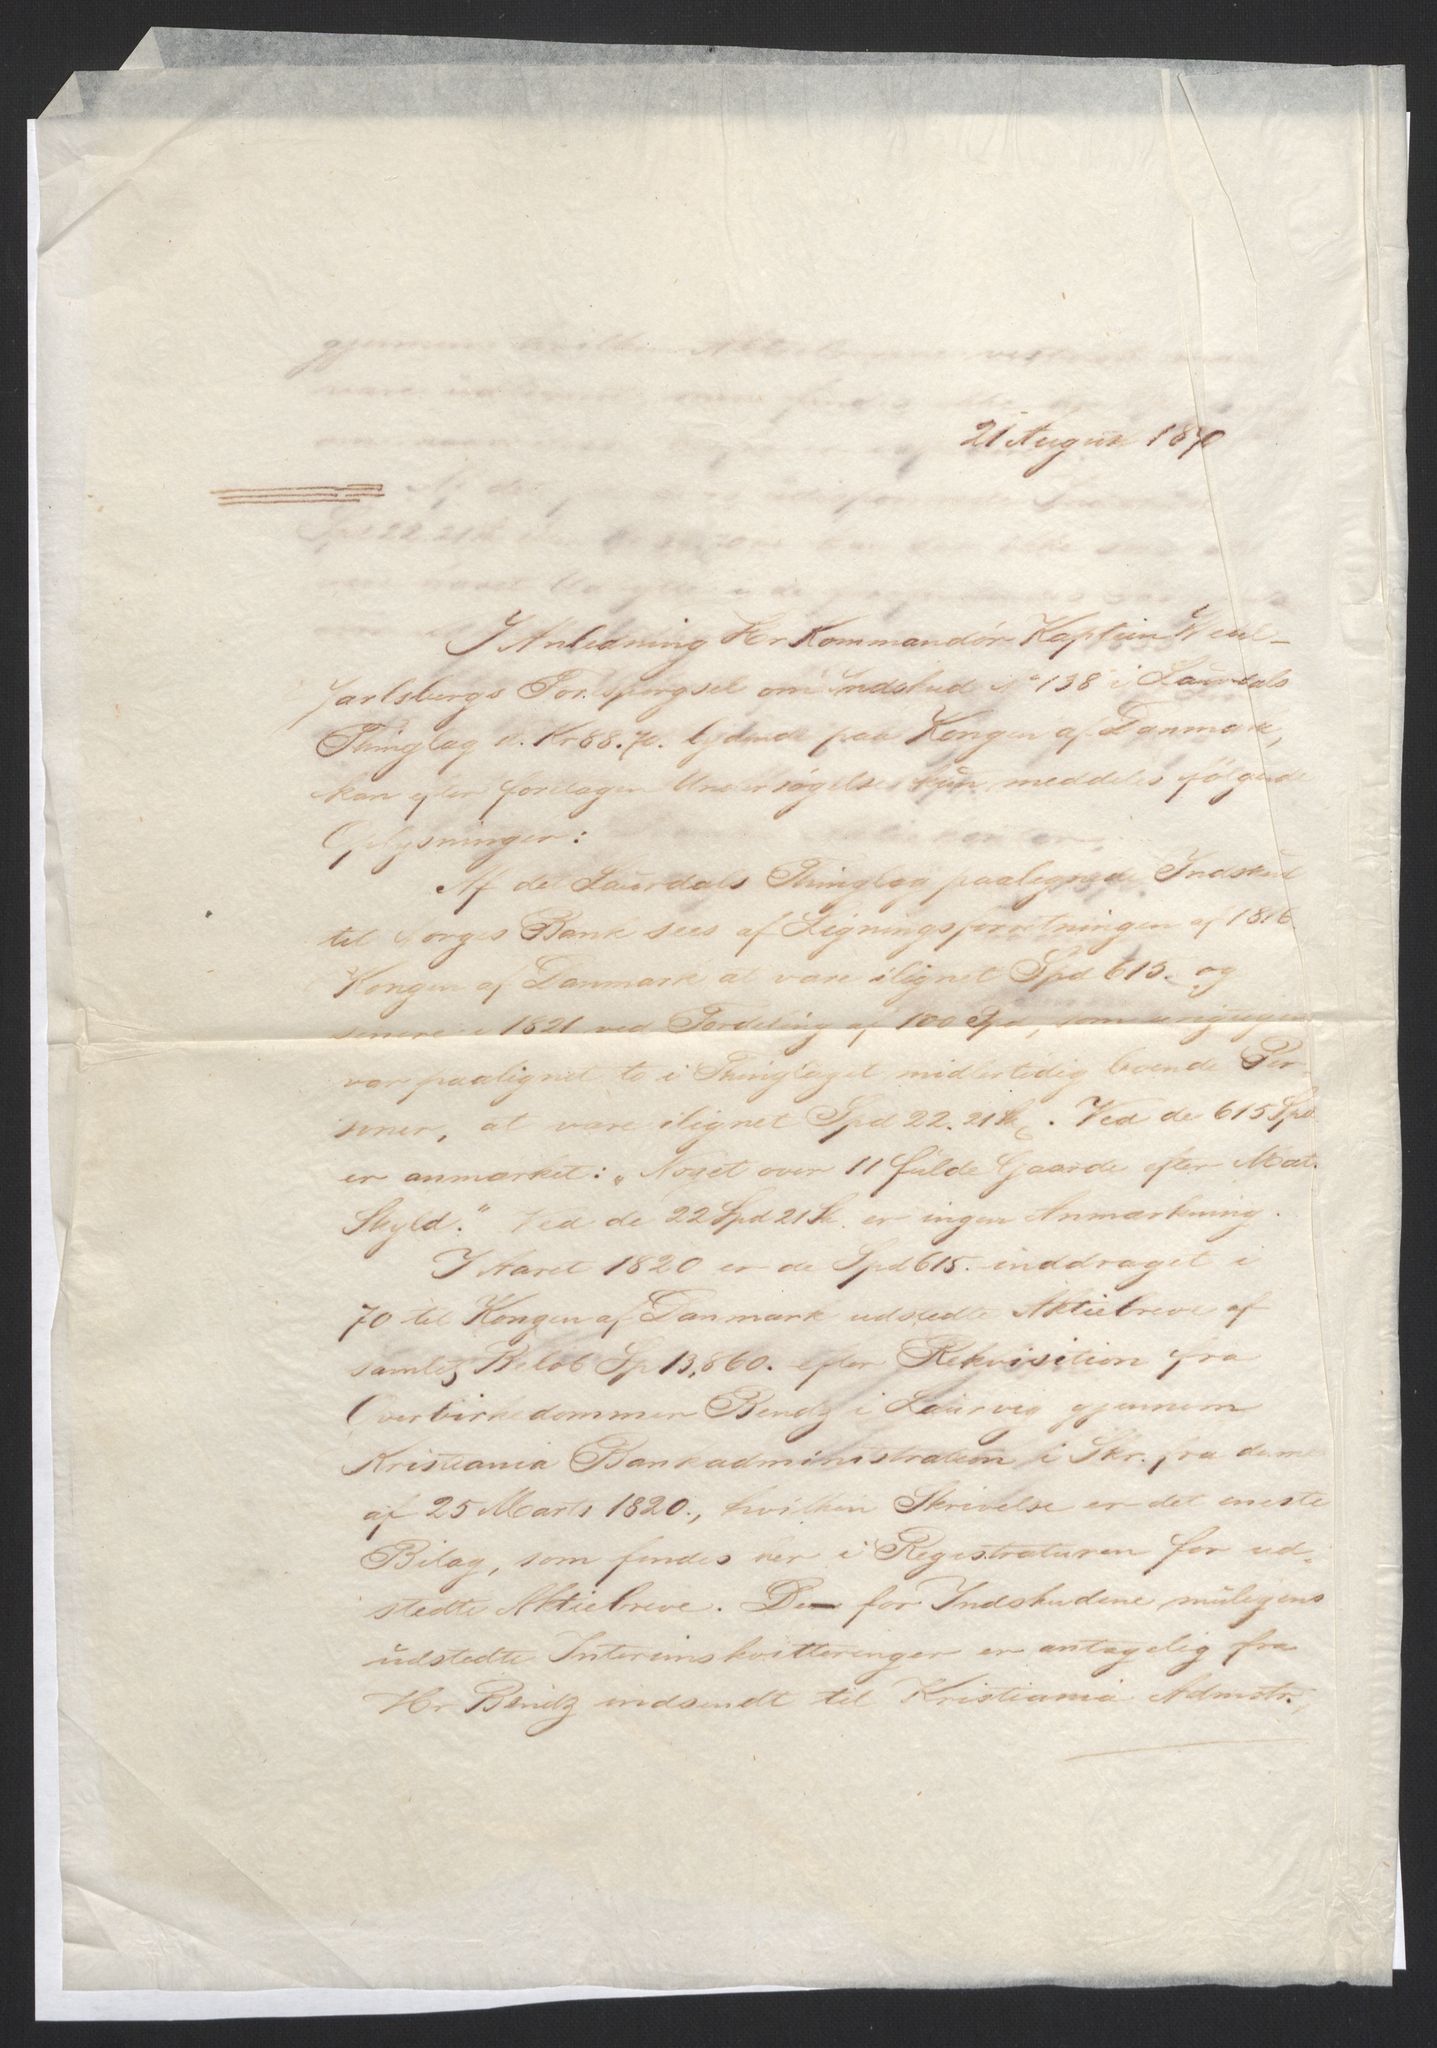 21 August 1890
I Anledning Hr Kommandør Kaptein Wedl-
Jarlsbergs Forespørgsel om Indskud No 138 i Laurdals
Thinglag st. Kr 88.70. lydende paa Kongen af Danmark,
kan efter foretagen Undersøgelse kun meddeles følgende
Oplysninger:
Af det Laurdals Thinglag paalignede Indskud
til Norges Bank sees af Ligningsforretningen af 1816
Kongen af Danmark at være ilignet Spd 615. og
senere i 1821 ved Fordeling af 100 Spd, som urigtigen
var paalignet to i Thinglaget midlertidig boende Per-
soner, at være ilignet Spd 22. 21 Sk. Ved de 615 Spd
er anmærket: „Noget over 11 fulde Gaarde efter Mat.
Skyld." Ved de 22 Spd 21 Sk. er ingen Anmærkning.
I Aaret 1820 er de Spd 615. inddraget i
70 til Kongen af Danmark udstedte Aktiebreve af
samlet Beløb Sp 13,860. efter Rekvisition fra
Overbirkedommer Bendz i Laurvig gjennem
Kristiania Bankadministration i Skr. fra denne
af 25 Marts 1820., hvilken Skrivelse er det eneste
Bilag, som findes her i Registraturen for ud-
stedte Aktiebreve. De for Indskudene muligens
udstedte Interimskvitteringer er antagelig fra
Hr Bendz indsendt til Kristiania Admstr.,